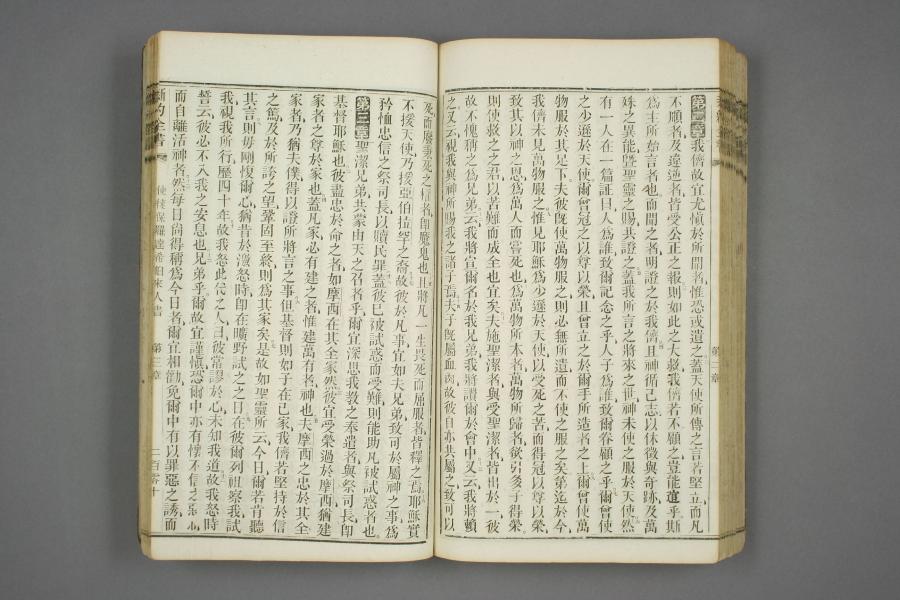 第二章我儕故宜尤慎於所聞者惟恐或遺之蓋天使所傳之言若堅立而凡
不順者及違逆者皆受公正之報則如此之大救我儕若不顧之豈能逭乎斯
爲主所始言者也而聞之者明證之於我儕且神循己志以休徵與奇跡及萬
殊之異能曁聖靈之賜共證之蓋我所言之將來之世神未使之服於天使然
有一人在一篇証曰人爲誰致爾記念之乎人子爲誰致爾眷顧之乎爾曾使
之少遜於天使爾曾冠之以尊以榮且曾立之於爾手所造者之上爾曾使萬
物服於其足下夫彼旣使萬物服之則必無所遺而不使之服之矣第迄於今
我儕未見萬物服之惟見耶穌爲少遜於天使以受死之苦而得冠以尊以榮
致其以神之恩爲萬人而嘗死也爲萬物所本者萬物所歸者欲引多子得榮
則使救之之君以苦難而成全也宜矣夫施聖潔者與受聖潔者皆出於一彼
故不愧稱之爲兄弟云我將宣爾名於我兄弟我將讚爾於會中又云我將賴
之又云視我與神所賜我之諸子焉夫子旣屬血肉故彼自亦共屬之致可以
死而廢秉死之權者卽魔鬼也且將凡一生畏死而屈服者皆釋之焉耶穌實
不援天使乃援亞伯拉罕之裔故彼於凡事宜如夫兄弟致可於屬神之事爲
矜恤忠信之祭司長以贖民罪蓋彼已被試惑而受難則能助凡被試惑者也
第三章聖潔兄弟共蒙由天之召者乎爾宜深思我教之奉遣者與祭司長卽
基督耶穌也彼盡忠於命之者如摩西在其全家然彼宜受榮過於摩西猶建
家者之尊於家也蓋凡家必有建之者惟建萬有者神也夫摩西之忠於其全
家者乃猶夫僕得以證所將言之事但基督則如子在己家我儕若堅持於信
之篤及於所誇之望鞏固至終則爲其家矣是故如聖靈所云今日爾若肯聽
其言則毋剛愎爾心猶昔於激怒時卽在曠野試之之日在彼爾列祖察我試
我視我所行歷四十年故我怒此代之人曰彼常謬於心未知我道故我怒時
誓云彼必不入我之安息也兄弟乎爾故宜謹愼恐爾中亦有懷不信之惡心
而自離活神者然每日尙得稱爲今日者爾宜相勸免爾中有以罪惡之誘而
新約全書
使徒保羅達希伯來人書
第三章
二百零十
第二章